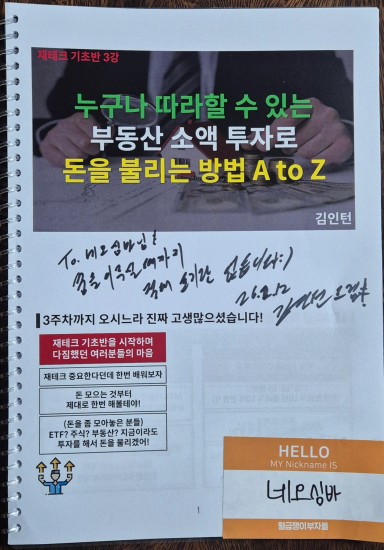 재테크 기초반 3강
누구나 따라할 수 있는
부동산 소액 투자로
돈을 불리는 방법 A to Z
김인턴
To. 네모심바님!
꿈을 이루실 때까지
절대 포기란 없습니다:)
26.2.12
3주차까지 오시느라 진짜 고생많으셨습니다!
재테크 기초반을 시작하며
다짐했던 여러분들의 마음
재테크 중요한다던데 한번 배워보자
돈 모으는 것부터
제대로 한번 해볼테야!
(돈을 좀 모아놓은 분들)
ETF? 주식? 부동산? 지금이라도
투자를 해서 돈을 불리겠어!
HELLO
MY Nickname IS
네모심바
월급쟁이부자들
1